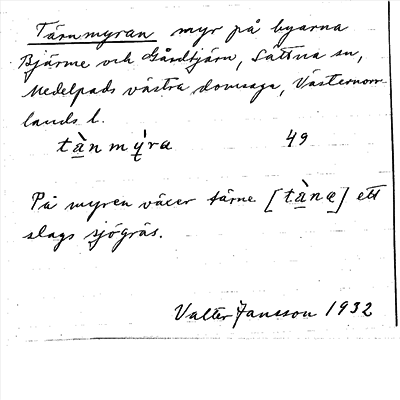 Tärnmyran myr på byarna
Bjärme och Gårdtjärn, Sättna sn,
Medelpads västra domsaga, Västernorr-
lands l.
tà̱nmý̱ra 49
På myren växer tärne [tà̱nə] ett
slags sjögräs.
Valter Jansson 1932